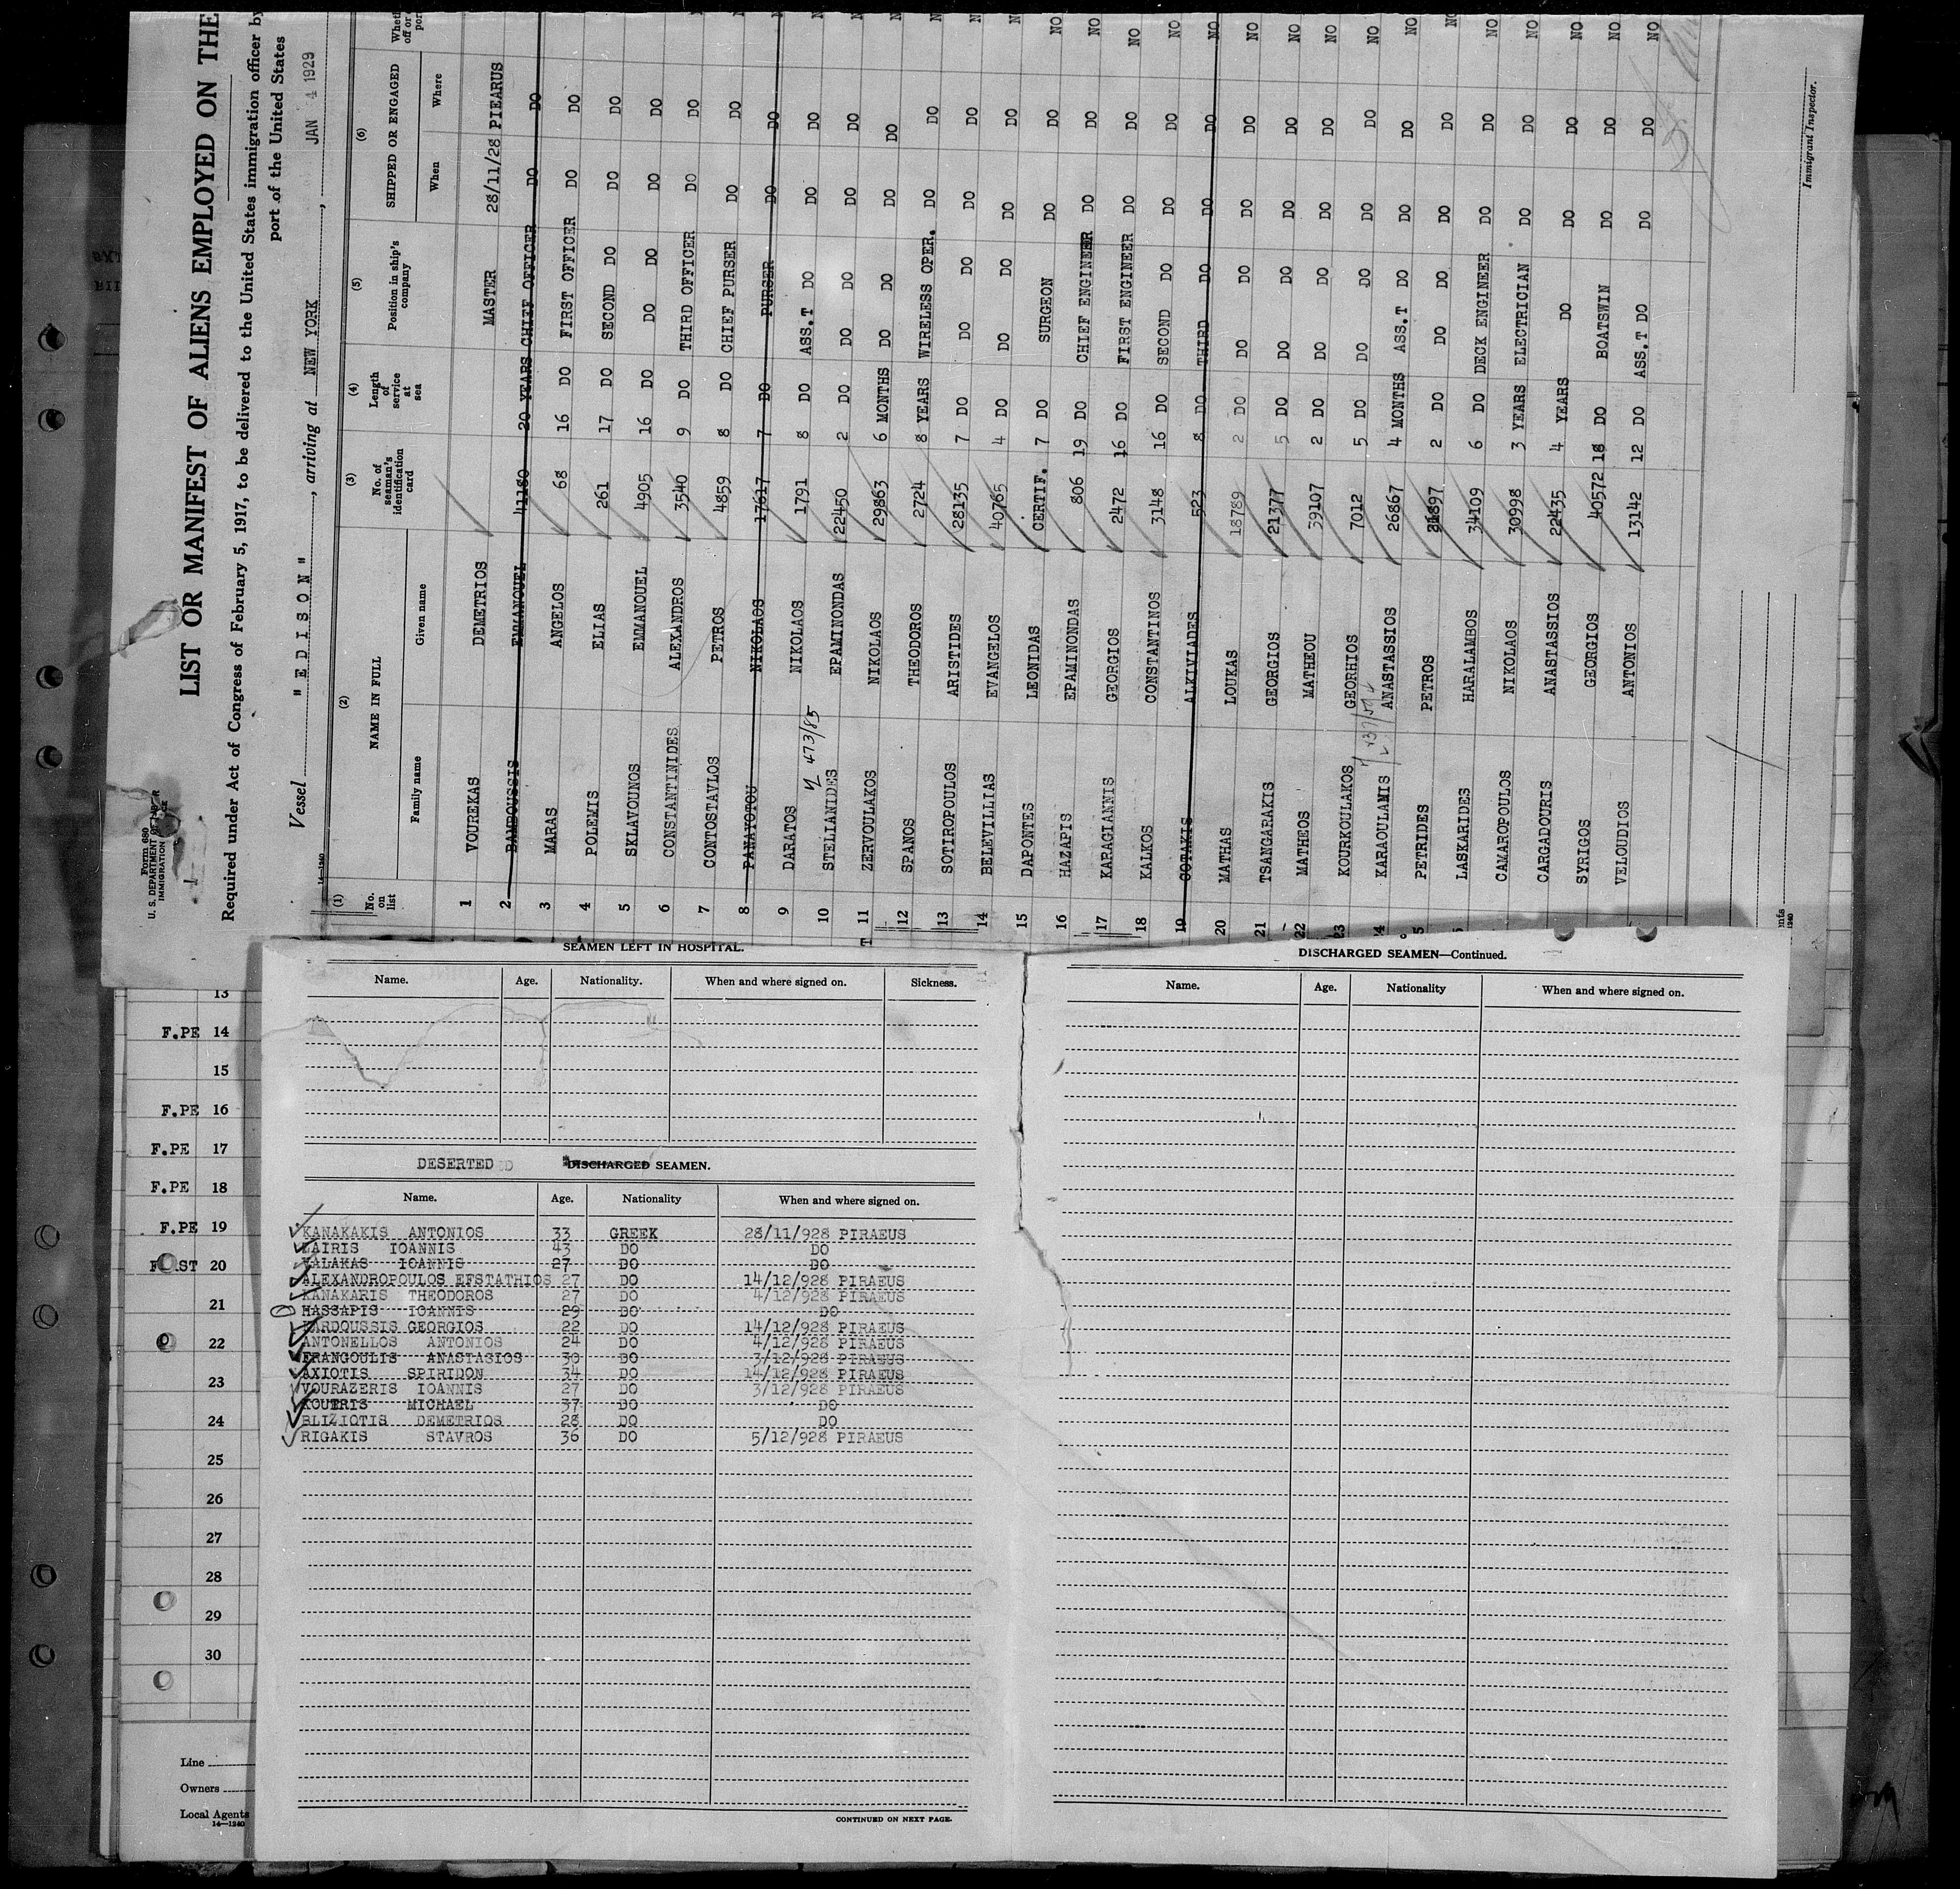 Form 680
U. S. DEPARTMENT OF LABOR
IMMIGRATION SERVICE
LIST OR MANIFEST OF ALIENS EMPLOYED ON THE
Required under Act of Congress of February 5, 1917, to be delivered to the United States immigration officer by
port of the United States
Vessel "EDISON", arriving at NEW YORK, JAN 4 1929
14-1240
(1) (2) (3) (4) (5) (6)
No. on list NAME IN FULL No. of seaman's identification card Length of service at sea Position in ship's company SHIPPED OR ENGAGED
Family name Given name When Where
1 VOUREKAS DEMETRIOS MASTER 28/11/28 PIEARUS
2 BAMBOUSSIS EMMANOUEL 41180 20 YEARS CHIEF OFFICER DO DO
3 MARAS ANGELOS 68 16 DO FIRST OFFICER DO DO
4 POLEMIS ELIAS 261 17 DO SECOND DO DO DO
5 SKLAVOUNOS EMMANOUEL 4905 16 DO DO DO DO DO
6 CONSTANTINIDES ALEXANDROS 3540 9 DO THIRD OFFICER DO DO
7 CONTOSTAVLOS PETROS 4859 8 DO CHIEF PURSER DO DO
8 PANAYOTOU NIKOLAOS 17617 7 DO PURSER DO DO
9 DARATOS NIKOLAOS 1791 8 DO ASS.T DO DO DO NO
473/85
10 STELIANIDES EPAMINONDAS 22450 2 DO DO DO DO DO
11 ZERVOULAKOS NIKOLAOS 29863 6 MONTHS DO DO DO DO
12 SPANOS THEODOROS 2724 8 YEARS WIRELESS OPER. DO DO
13 SOTIROPOULOS ARISTIDES 28135 7 DO DO DO DO DO
14 BELEVILIAS EVANGELOS 40765 4 DO DO DO DO DO
15 DAPONTES LEONIDAS CERTIF. 7 DO SURGEON DO DO NO
16 HAZAPIS EPAMINONDAS 806 19 DO CHIEF ENGINEER DO DO NO
17 KARAGIANNIS GEORGIOS 2472 16 DO FIRST ENGINEER DO DO NO
18 KALKOS CONSTANTINOS 3148 16 DO SECOND DO DO DO NO
19 COTAKIS ALKIVIADES 523 8 DO THIRD DO DO DO NO
20 MATHAS LOUKAS 18789 2 DO DO DO DO DO NO
21 TSANGARAKIS GEORGIOS 21377 5 DO DO DO DO DO NO
22 MATHEOS MATHEOU 39107 2 DO DO DO DO DO NO
23 KOURKOULAKOS GEORHIOS 7012 5 DO DO DO DO DO NO
KARAOULAMIS ANASTASSIOS 26867 4 MONTHS ASS.T DO DO DO NO
PETRIDES PETROS 2 DO DO DO DO DO NO
LASKARIDES HARALAMBOS 34109 6 DO DECK ENGINEER DO DO NO
CAMAROPOULOS NIKOLAOS 30998 3 YEARS ELECTRICIAN DO DO NO
CARGADOURIS ANASTASSIOS 22435 4 YEARS DO DO DO NO
SYRIGOS GEORGIOS 40572 18 DO BOATSWIN DO DO NO
VELOUDIOS ANTONIOS 13142 12 DO ASS.T DO DO DO NO
Immigrant Inspector.
13
F.PE 14
15
F.PE 16
F.PE 17
F.PE 18
F.PE 19
20
21
22
23
24
25
26
27
28
29
30
Line
Owners
Local Agents
14—1240
SEAMEN LEFT IN HOSPITAL.
Name. Age. Nationality. When and where signed on. Sickness.
DESERTED DISCHARGED SEAMEN.
Name. Age. Nationality When and where signed on.
KANAKAKIS ANTONIOS 33 GREEK 28/11/928 PIRAEUS
LAIRIS IOANNIS 43 DO DO
VALAKAS IOANNIS 27 DO DO
ALEXANDROPOULOS EFSTATHIOS 27 DO 14/12/928 PIRAEUS
KANAKARIS THEODOROS 27 DO 4/12/928 PIRAEUS
HASSAPIS IOANNIS 29 DO DO
VARDOUSSIS GEORGIOS 22 DO 14/12/928 PIRAEUS
ANTONELLOS ANTONIOS 24 DO 4/12/928 PIRAEUS
FRANGOULIS ANASTASIOS 30 DO 3/12/928 PIRAEUS
AXIOTIS SPIRIDON 34 DO 14/12/928 PIRAEUS
VOURAZERIS IOANNIS 27 DO 3/12/928 PIRAEUS
KOUTRIS MICHAEL 37 DO DO
BLIZIOTIS DEMETRIOS 28 DO DO
RIGAKIS STAVROS 36 DO 5/12/928 PIRAEUS
CONTINUED ON NEXT PAGE.
DISCHARGED SEAMEN—Continued.
Name. Age. Nationality When and where signed on.